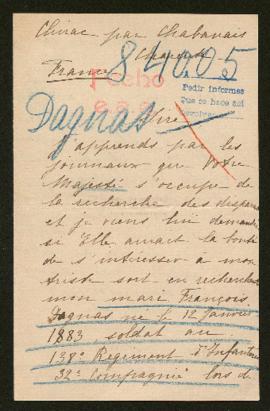 Chirac par Chabanais
Charente
France
84005
Fecho
Pedir informes
Dagnas
Sire
J'apprends par les
journaux que Votre
Majesté s'occupe de
la recherche des disparus
et je viens lui demander
si Elle aurait la bonté
de s'intéresser à mon
triste sort en recherchant
mon mari François
Dagnas né le 12 Janvier
1883 soldat au
138e Régiment d'Infanterie
32e Compagnie lors de